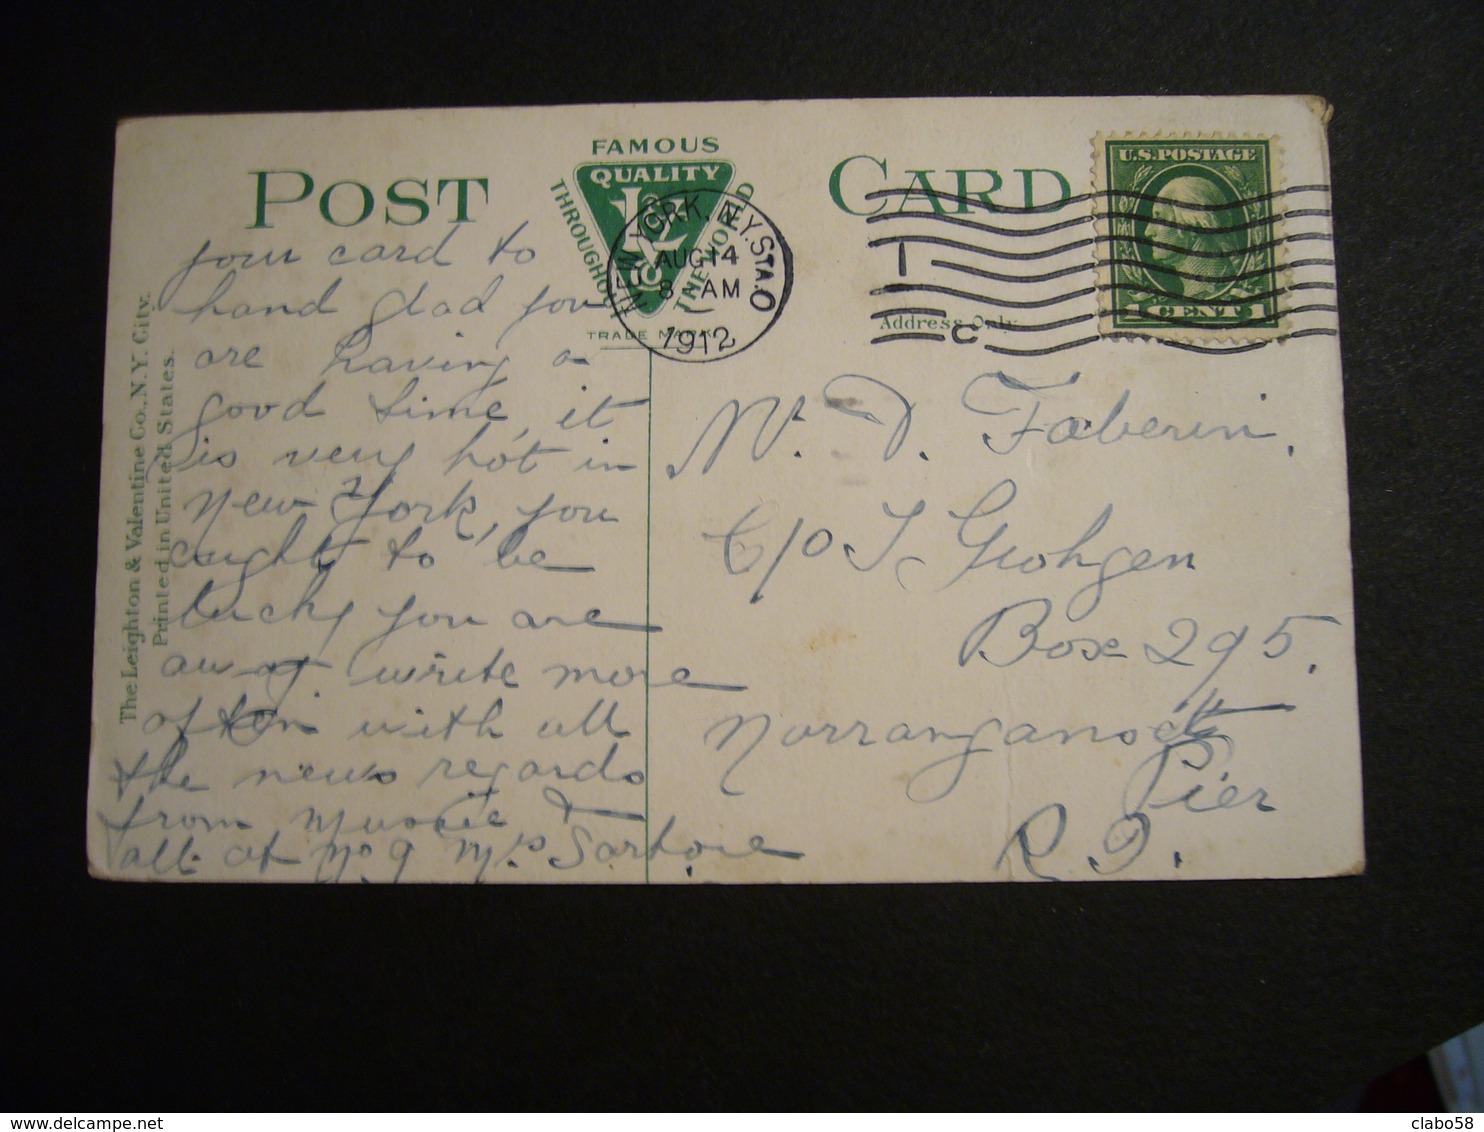 POST CARD
FAMOUS
QUALITY
THROUGHOUT
THE WORLD
L&V Co
TRADE MARK
NEW YORK, N.Y. STA. O
AUG 14
8 AM
1912
1
C
U.S. POSTAGE
1 CENT 1
Address Only
The Leighton & Valentine Co., N.Y. City.
Printed in United States.
your card to
hand glad you
are having a
good time, it
is very hot in
New York, you
ought to be
lucky you are
away. write more
often with all
the news regards
from &
all at No 9 Sartore
D. Faberin.
C/o Grohgen
Box 295.
Narranganset
Pier
R. I.
clabo58